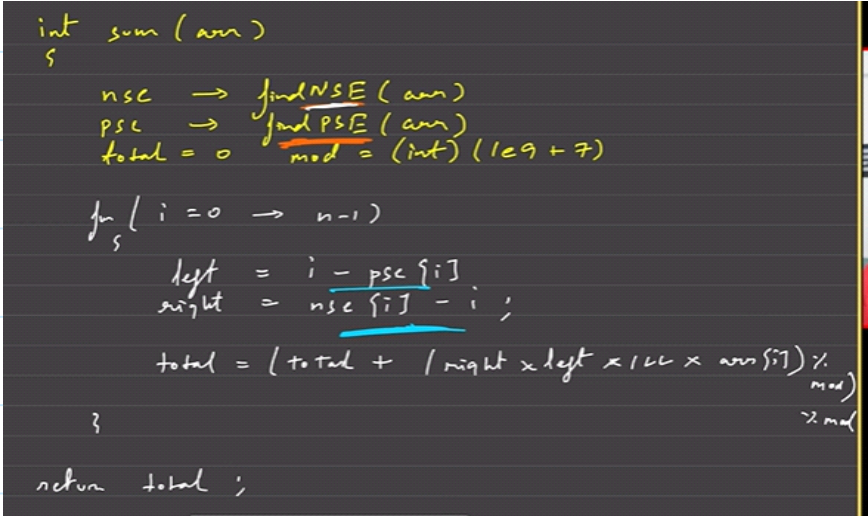 int sum (arr)
{
nse → findNSE (arr)
pse → find PSE (arr)
total = 0 mod = (int) (1e9 + 7)
for ( i = 0 → n-1)
{
left = i - pse [i]
right = nse [i] - i ;
total = (total + (right x left x 1LL x arr[i]) %
mod)
% mod
}
return total ;